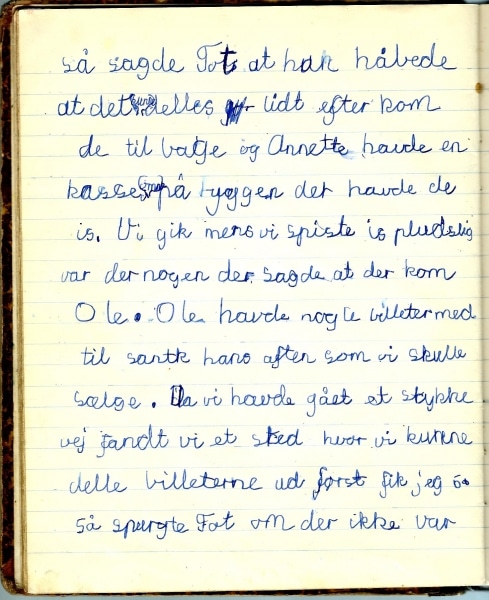 så sagde Tot at han håbede
at det ellers lidt efter kom
de til vatje og Annette havde en
kasse på ryggen der havde de
is. Vi gik mens vi spiste is pludslig
var der nogen der sagde at der kom
Ole. Ole havde nogle billeter med
til santk hans aften som vi skulle
sælge. Da vi havde gået et stykke
vej fandt vi et sted hvor vi kunne
delle billeterne ud først fik jeg 6.
Så spurgte Tot om der ikke var